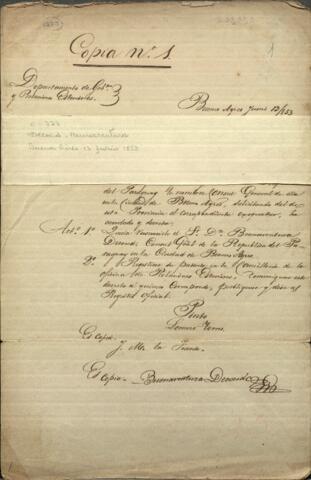 Copia nº 1.
Departamento de Gobno
y Relaciones Esteriores.
Buenos Ayres Junio 13/853
Buenos Aires 13 junio 1853
del Paraguay lo nombra Consul General de
en la Ciudad de Buenos Ayres, solicitando del de
esta Provincia el correspondiente exequatur, ha
acordado y decreta
Artº 1º Queda reconocido el Sr. Dn Buenaventura
Decoud, Consul Gral de la República del Pa-
raguay en la Ciudad de Buenos Ayres.
2º Registrese la Patente en la Cancilleria de la
oficina de Relaciones Esteriores, comuniquese este
decreto á quienes corresponde, publiquese y dese al
Registro oficial.
Pinto
Lorenzo Torres
Es copia
Es copia - Buenaventura Decoud